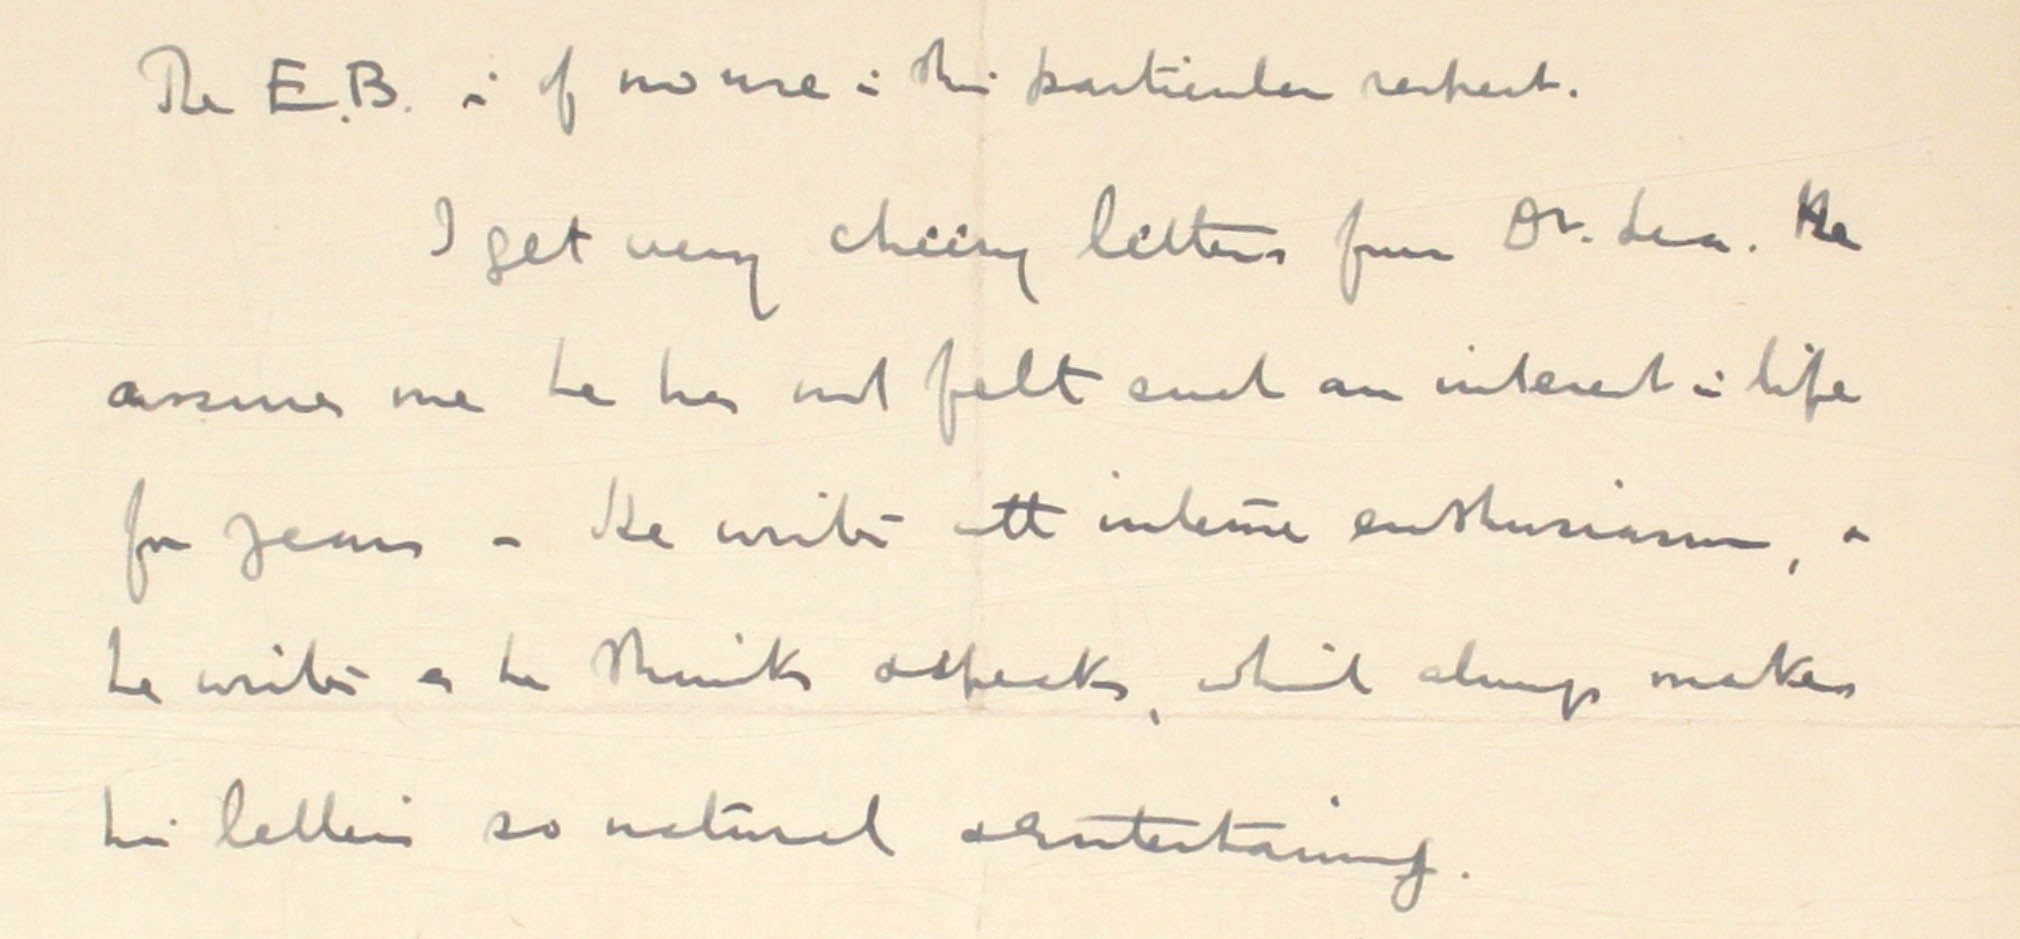 The E.B. is of no use in this particular respect.
I get very cheery letters from Dr. Lea. He
assures me he has not felt such an interest in life
for years - He writes with intense enthusiasm, &
he writes as he thinks & speaks, which always makes
his letters so natural & entertaining.